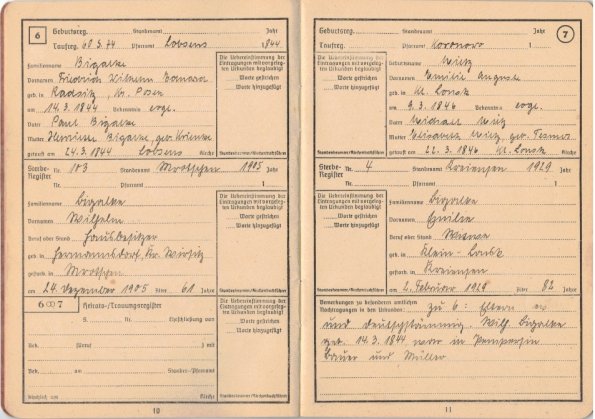 6 Geburtsreg. Standesamt Jahr
Taufreg. 60 S. 74 Pfarramt Lobsens 1844
Familienname Bigalke
Vornamen Friedrich Wilhelm
geb. in Radsitz, Kr. Posen
am 14.3.1844 Bekenntnis evgl.
Vater Paul Bigalke
Mutter Henriette Bigalke, geb. Krienke
getauft am 24.3.1844 Lobsens Kirche
Die Übereinstimmung der
Eintragungen mit vorgeleg-
ten Urkunden beglaubigt
Worte gestrichen
Worte hinzugefügt
Standesbeamter/Kirchenbuchführer
Sterbe-Register Nr. 103 Standesamt Mrotschen 1905 Jahr
Nr. Pfarramt 1
Familienname Bigalke
Vornamen Wilhelm
Beruf oder Stand Hausbesitzer
geb. in Hermannsdorf, Kr. Wirsitz
gestorb. in Mrotschen
am 24. Dezember 1905 Alter 61 Jahre
Die Übereinstimmung der
Eintragungen mit vorgeleg-
ten Urkunden beglaubigt
Worte gestrichen
Worte hinzugefügt
Standesbeamter/Kirchenbuchführer
6 ∞ 7 Heirats-/Trauungsregister
S. Nr. Eheschließung von
Bek. (Beruf ) mit
Bek. am Standes-/Pfarramt
Kirchlich am Kirche
Die Übereinstimmung der
Eintragungen mit vorgeleg-
ten Urkunden beglaubigt
Worte gestrichen
Worte hinzugefügt
Standesbeamter/Kirchenbuchführer
10
Geburtsreg. Standesamt Jahr 7
Taufreg. Pfarramt Koronowo 1
Geburtsname Wietz
Vornamen Emilie Auguste
geb. in Kl. Lonsk
am 9.3.1846 Bekenntnis evgl.
Vater Michael Wietz
Mutter Elisabeth Wietz, geb. Tesmer
getauft am 22.3.1846 Kl. Lonsk Kirche
Die Übereinstimmung der
Eintragungen mit vorgeleg-
ten Urkunden beglaubigt
Worte gestrichen
Worte hinzugefügt
Standesbeamter/Kirchenbuchführer
Sterbe-Register Nr. 4 Standesamt Kreiensen 1929 Jahr
Nr. Pfarramt 1
Familienname Bigalke
Vornamen Emilie
Beruf oder Stand Witwe
geb. in Klein-Lonsk
gestorb. in Kreiensen
am 2. Februar 1929 Alter 82 Jahre
Die Übereinstimmung der
Eintragungen mit vorgeleg-
ten Urkunden beglaubigt
Worte gestrichen
Worte hinzugefügt
Standesbeamter/Kirchenbuchführer
Bemerkungen zu besonderen amtlichen
Nachtragungen in den Urkunden: zu 6: Eltern
und deutschstämmig. Wilh. Bigalke
geb. 14.3.1844 war in
Bauer und Müller
11